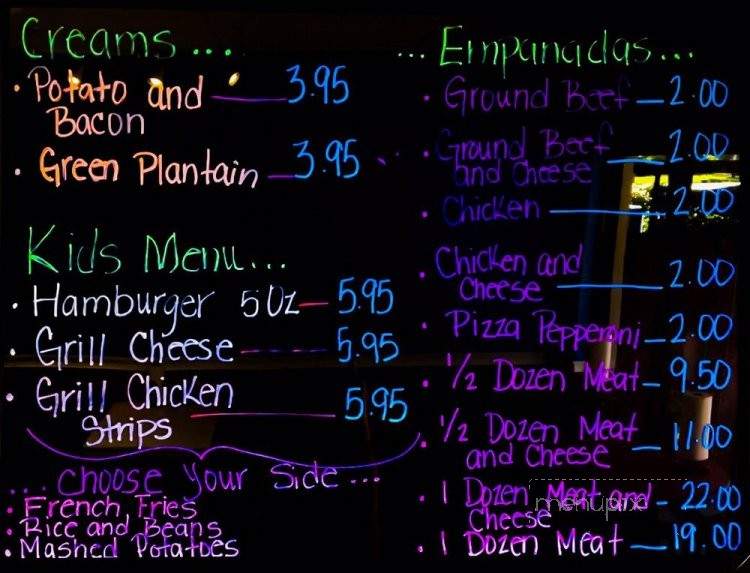 Creams...
• Potato and 3.95
Bacon
• Green Plantain 3.95
Kids Menu...
• Hamburger 5 Oz 5.95
• Grill Cheese 5.95
• Grill Chicken
Strips 5.95
...Choose Your Side...
• French Fries
• Rice and Beans
• Mashed Potatoes
...Empanadas...
• Ground Beef 2.00
• Ground Beef 2.00
and Cheese
• Chicken 2.00
• Chicken and
Cheese 2.00
• Pizza Pepperoni 2.00
• 1/2 Dozen Meat 9.50
• 1/2 Dozen Meat
and Cheese 11.00
• 1 Dozen Meat and 22.00
Cheese
• 1 Dozen Meat 19.00
menupix